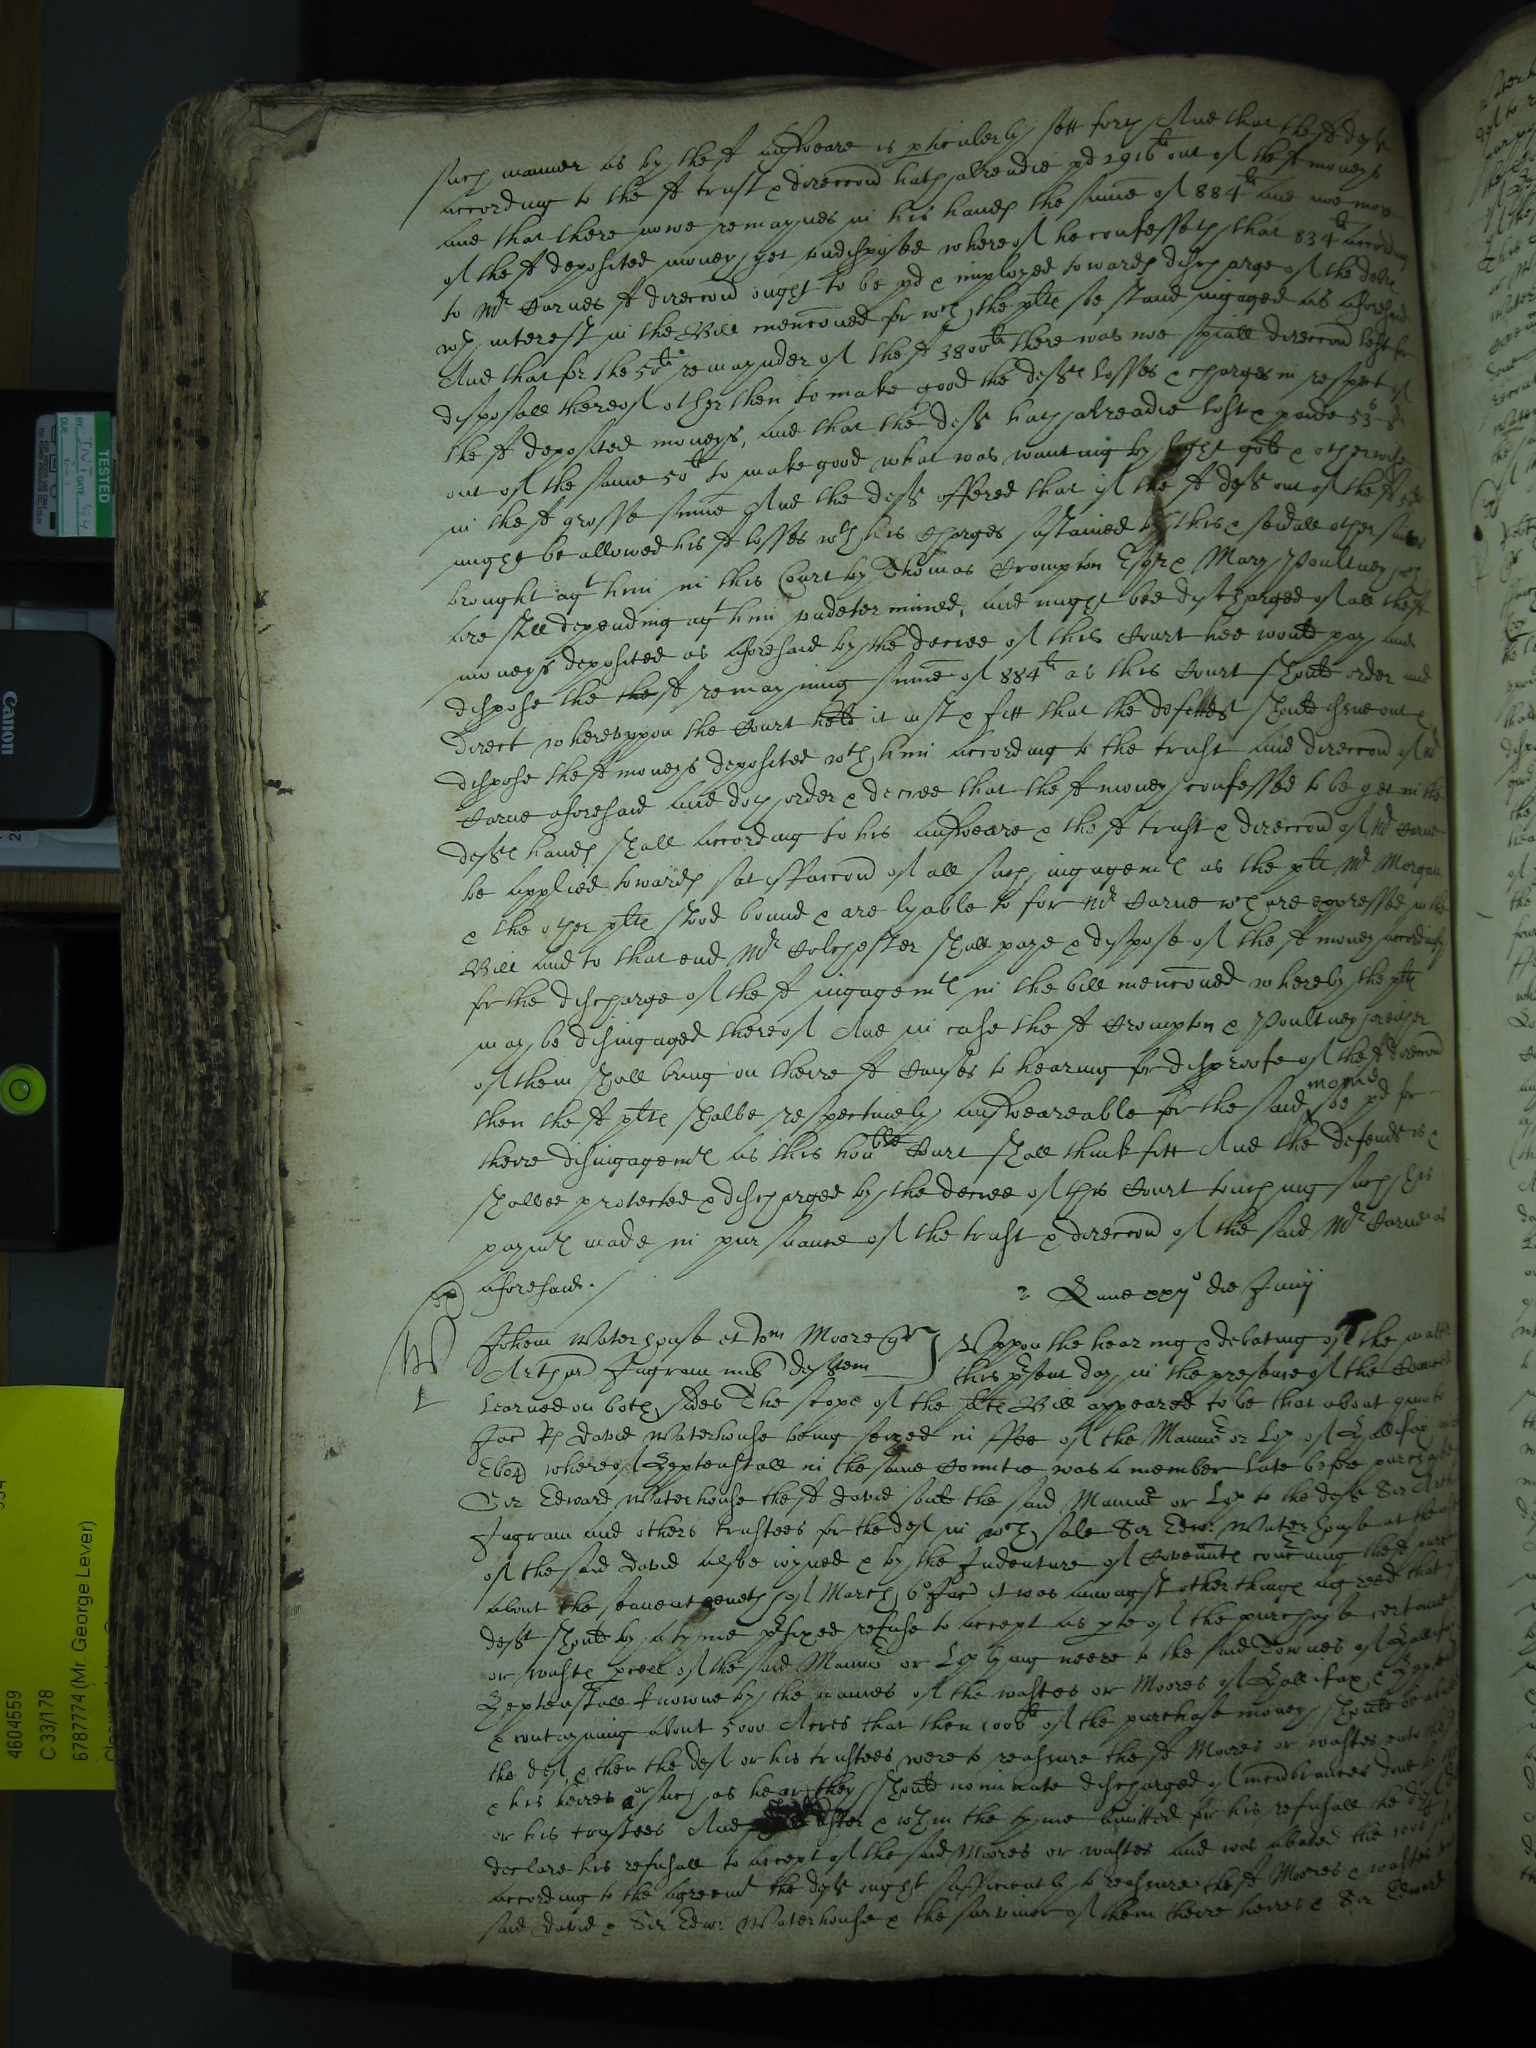 such manner as by the sd answeare is pticulerly sett forth And that the sd deft
according to the sd trust & direccon hath alreadie pd 2916li out of the sd moneys
and that there nowe remaynes in his hands the sume of 884li and noe more
of the sd deposited moneys yet undisposed whereof he confesseth that 834li according
to Mr Carnes sd direccon ought to be pd & imployed towards discharge of the debts
wth interest in the Bill menconed for wch the plts soe stand ingaged as aforesaid
And that for the 50li remaynder of the sd 3800li there was noe spiall direccon left for
disposall thereof other then to make good the defts losses & charges in respect of
the sd deposited moneys, and that the deft hath alreadie lost & paide
out of the same 50li to make good what was wanting by light gold & otherwise
in the sd grosse sume And the deft offered that if the sd deft out of the sd
might be allowed his sd losses wth his charges sustained by this & sevall other suites
brought agt him in this Court by Thomas Crompton Esqr & Mary Poultney wch
are still depending agt him undetermined, and might bee discharged of all the sd
moneys deposited as aforesaid by the decree of this Court hee would pay and
dispose the the sd remayning sume of 884li as this Court should order and
direct whereuppon the Court held it iust & fitt that the defts should issue out &
dispose the sd moneys deposited wth him according to the trust and direccon of Mr
Carne aforesaid And doth order & decree that the sd money confessed to be yet in the
defts hands shall according to his answeare & the sd trust & direccon of Mr Carne
be applied towards satisfaccon of all such ingagemts as the plt Mr Morgan
& the other plts stood bound & are lyable to for Mr Carne wch are expressed in the
Bill and to that end Mr Colchester shall paye & dispose of the sd money accordingly
for the discharge of the sd ingagemts in the bill menconed whereby the plts
may be disingaged thereof And in case the sd Crompton & Poultney or either
of them shall bring on theire sd Causes to hearing for disproofe of the sd direccon
then the sd plts shalbe respectively answeareable for the said monie soe pd for
theire disingagemts as this honble Court shall think fitt And the defendt is &
shalbee protected & discharged by the decree of this Court touching such his
paymts made in pursuance of the trust & direccon of the said Mr Carne as
aforesaid.
Lune die Junij
Johem Waterhouse et Moore quer
Arthur Ingram mil deftem
Uppon the hearing & debating of the matter
this psent day in the presence of the Councell
Learned on both sides The scope of the plts Bill appeared to be that about quinto
Jac Rs David Waterhouse being seized in ffee of the Mannor or Lpp of Hallifax in
Ebor whereof Heptenstall in the same Countie was a member late before purchased
Sir Edward Waterhouse the sd David sould the said Mannor or Lpp to the deft Sir Arthur
Ingram and others trustees for the deft in wch sale Sir Edw: Waterhouse at the
of the said David alsoe ioyned & by the Indenture of Covenants concning the sd purchase
about the seaventeenth of March 6o Jac it was amongst other things agreed that if
deft should by a tyme pfixed refuse to accept as pte of the purchase certaine
or wasts pcell of the said Mannor or Lpp lying neere to the said Townes of Hallifax
Heptenstall knowne by the names of the wastes or Moores of Hallifax & Heptenstall
& contayning about 5000 Acres that then 1000li of the purchase money should be abated
the deft & then the deft or his trustees were to reassure the sd Moores or wastes unto the sd
& his heires or such as he or they should nominate discharged of incumbrances done by
or his trustees And after & wthin the tyme limitted for his refusall the deft
declare his refusall to accept of the said Moores or wastes and was abated the 1000li
according to the agreemt the deft ought sufficiently to reassure the sd Moores & wastes
said David & Sir Edw: Waterhouse & the survivor of them theire heires & Sir Edward
TESTED
BY
DATE
DUE
Canon
4604559
C 33/178
6787774 (Mr. George Lever)